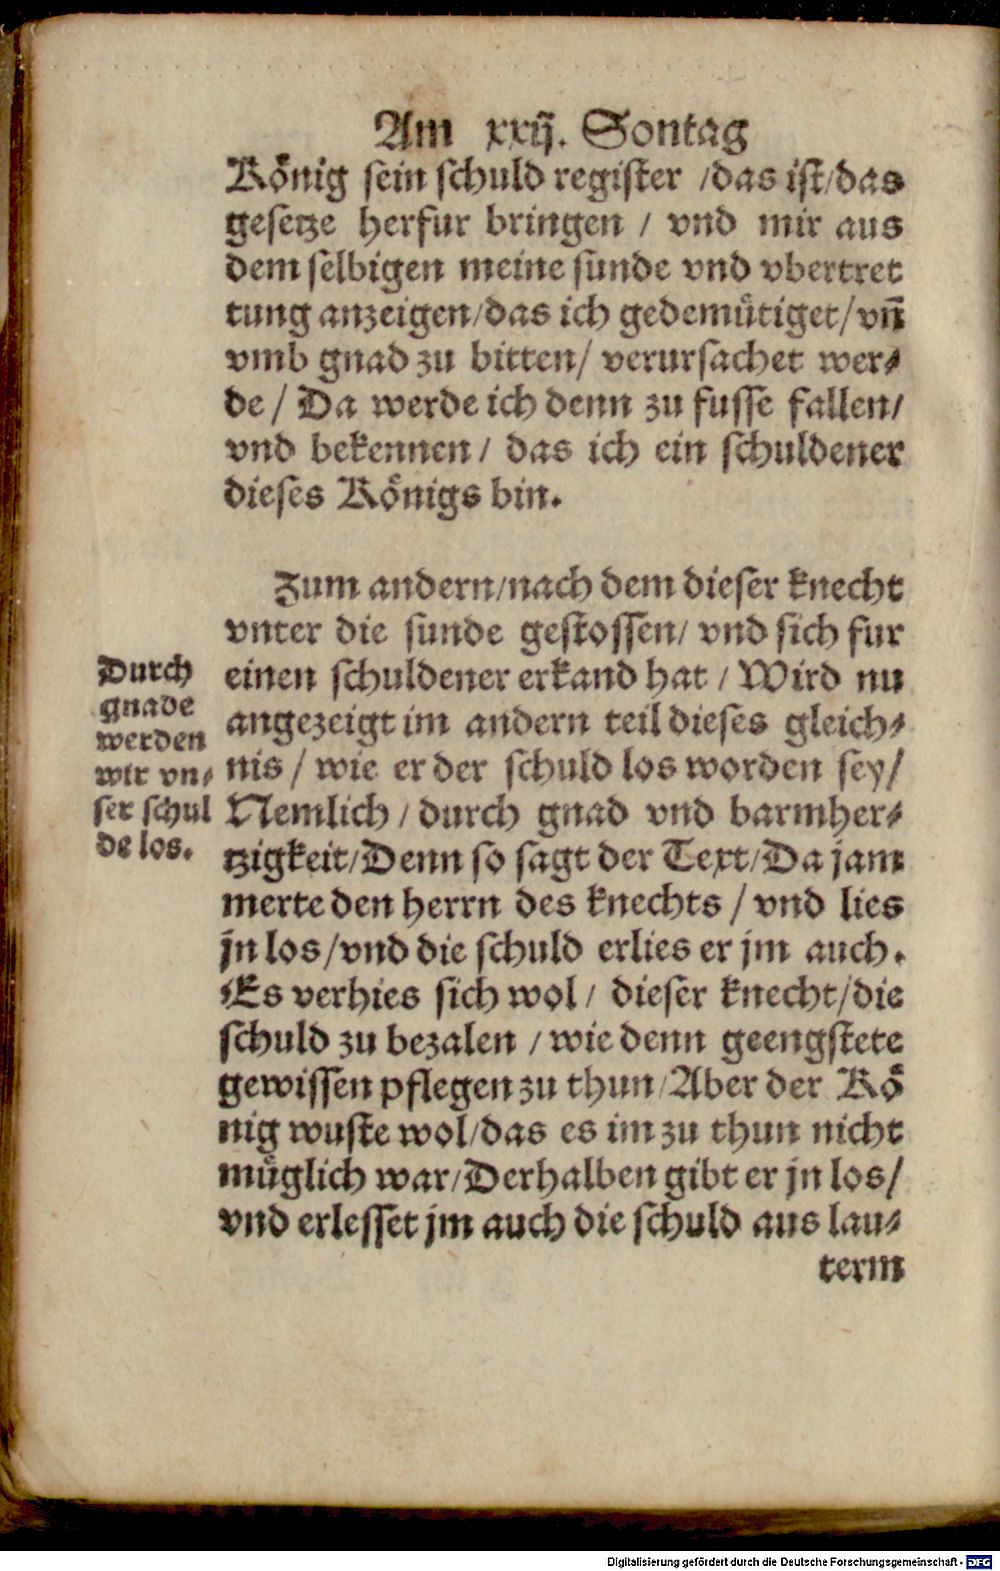 Am xxij. Sontag
Koͤnig sein schuld register / das ist / das
gesetze herfur bringen / vnd mir aus
dem selbigen meine sunde vnd vbertret
tung anzeigen / das ich gedemuͤtiget / vñ
vmb gnad zu bitten / verursachet wer⸗
de / Da werde ich denn zu fusse fallen /
vnd bekennen / das ich ein schuldener
dieses Koͤnigs bin.
Zum andern / nach dem dieser knecht
vnter die sunde gestossen / vnd sich fur
einen schuldener erkand hat / Wird nu
angezeigt im andern teil dieses gleich⸗
nis / wie er der schuld los worden sey /
Nemlich / durch gnad vnd barmher⸗
tzigkeit / Denn so sagt der Text / Da jam
merte den herrn des knechts / vnd lies
jn los / vnd die schuld erlies er jm auch.
Es verhies sich wol / dieser knecht / die
schuld zu bezalen / wie denn geengstete
gewissen pflegen zu thun / Aber der Koͤ
nig wuste wol / das es im zu thun nicht
muͤglich war / Derhalben gibt er jn los /
vnd erlesset jm auch die schuld aus lau⸗
term
Durch
gnade
werden
wir vn⸗
ser schul
de los.
Digitalisierung gefördert durch die Deutsche Forschungsgemeinschaft - DFG